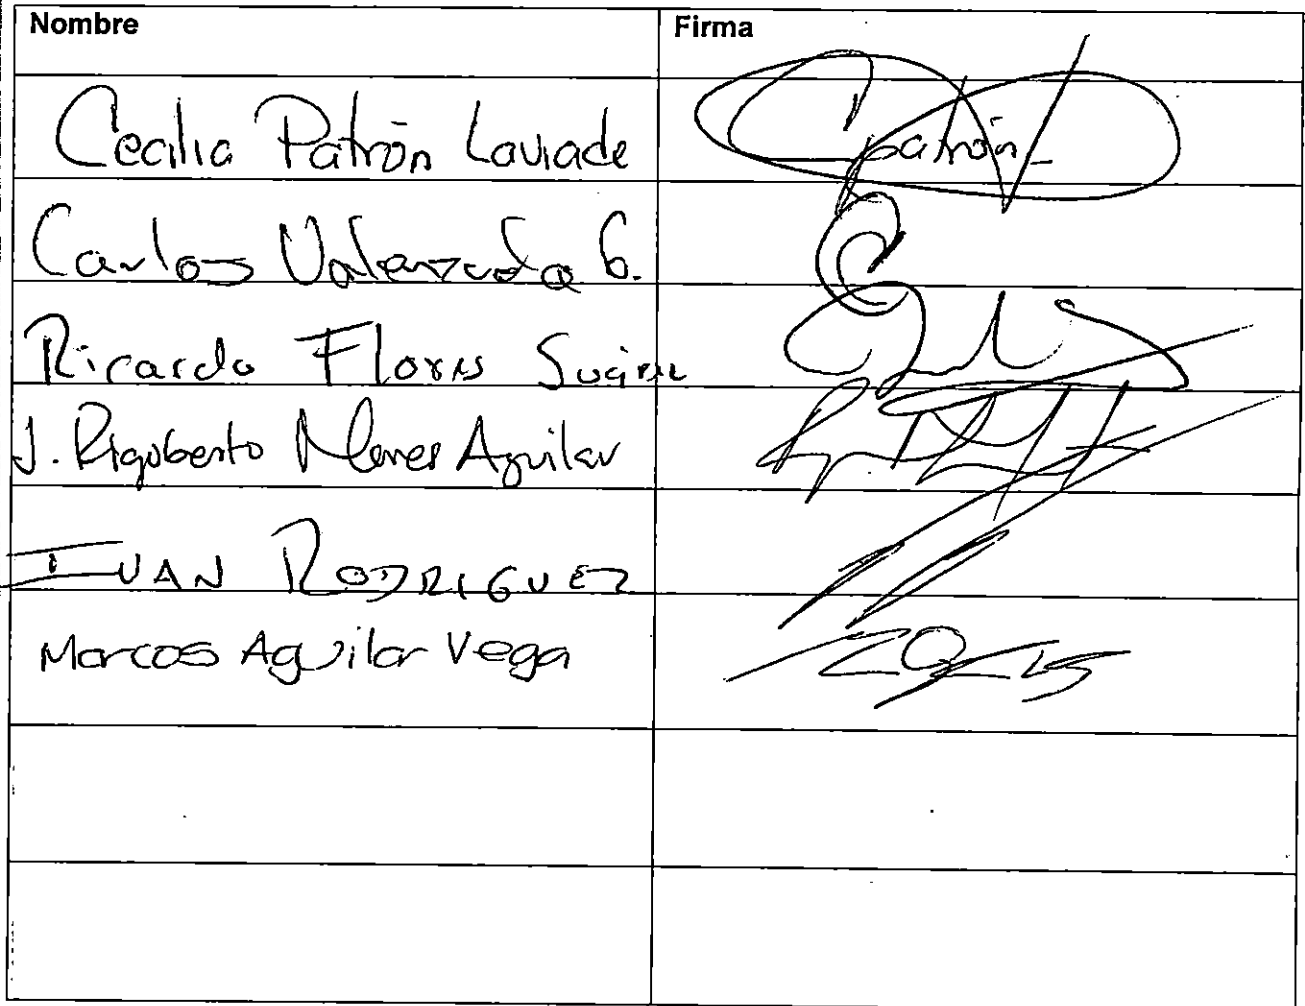 Nombre Firma
Cecilia Patrón Laviada patrón
Carlos Valenzuela G.
Ricardo Flores Suárez
J. Rigoberto Mares Aguilar
IVAN RODRIGUEZ
Marcos Aguilar Vega